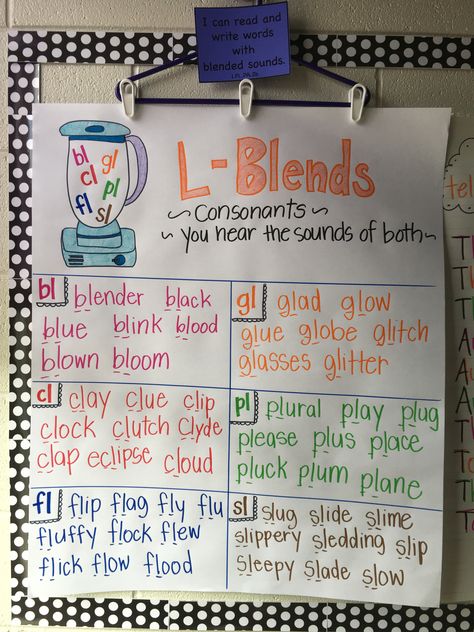 I can read and
write words
with
blended sounds.
bl
gl
cl
pl
fl
sl
L-Blends
~ Consonants ~
~ You hear the sounds of both ~
bl
blender black
blue blink blood
blown bloom
gl
glad glow
glue globe glitch
glasses glitter
cl
clay clue clip
clock clutch Clyde
clap eclipse cloud
pl
plural play plug
please plus place
pluck plum plane
fl
flip flag fly flu
fluffy flock flew
flick flow flood
sl
slug slide slime
slippery sledding slip
sleepy Slade slow
tel